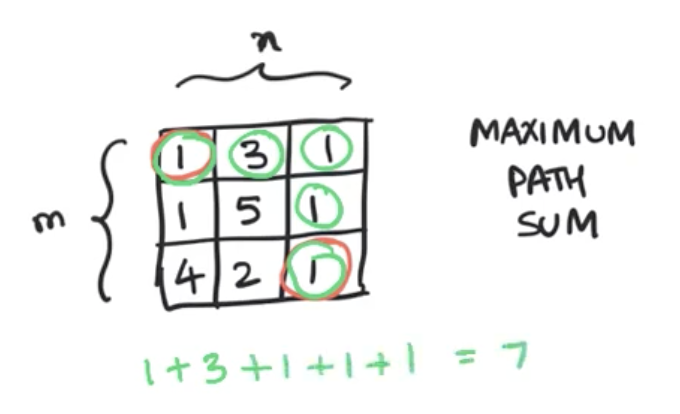 n
1 3 1
m
1 5 1
4 2 1
MAXIMUM
PATH
SUM
1+3+1+1+1 = 7